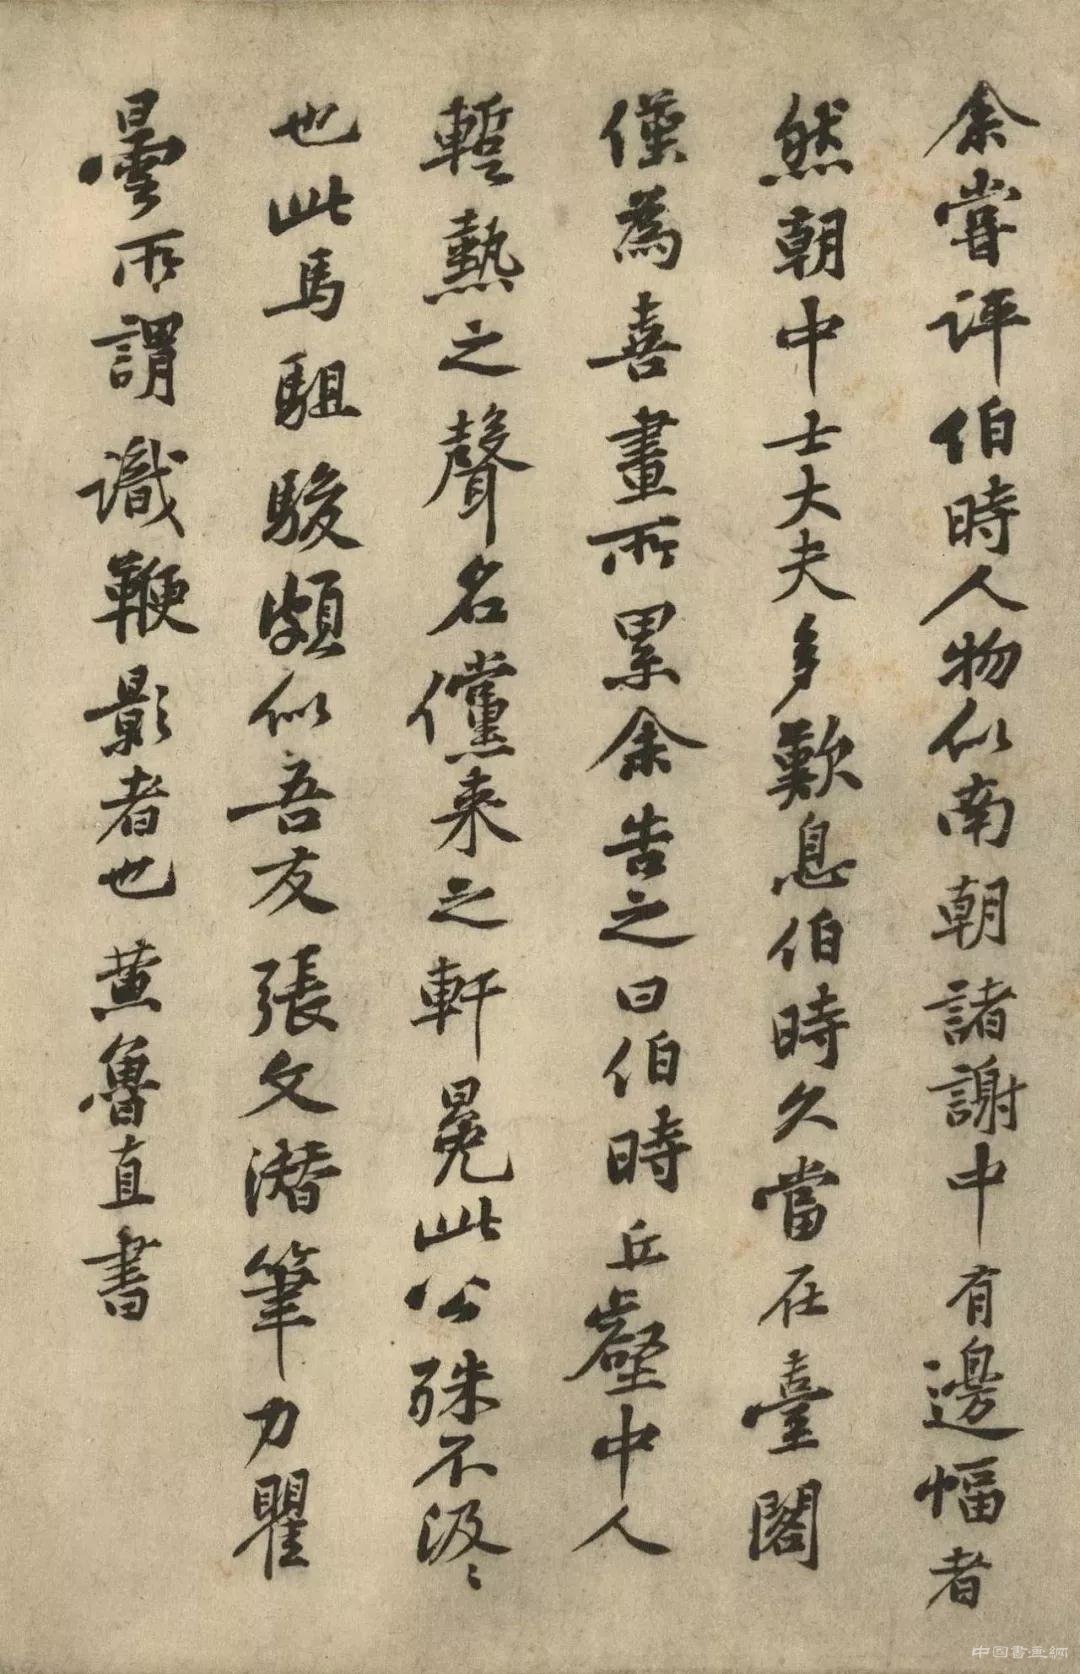 余嘗評伯時人物似南朝諸謝中有邊幅者
然朝中士大夫多歎息伯時久當在臺閣
僅為喜畫所累余告之曰伯時丘壑中人
暫熱之聲名儻来之軒冕此公殊不汲〻
也此馬駔駿頗似吾友張文潜筆力瞿
曇所謂識鞭影者也黄魯直書
中国書画網